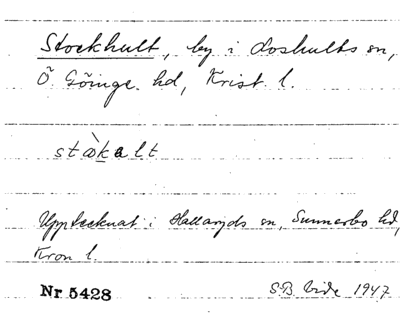 Stockhult, by i Loshults sn,
Ö Göinge hd, Krist l.
stὰkalt
Upptecknat i Hallaryds sn, Sunnerbo hd,
Kron l.
Nr 5428 SB Vide 1947